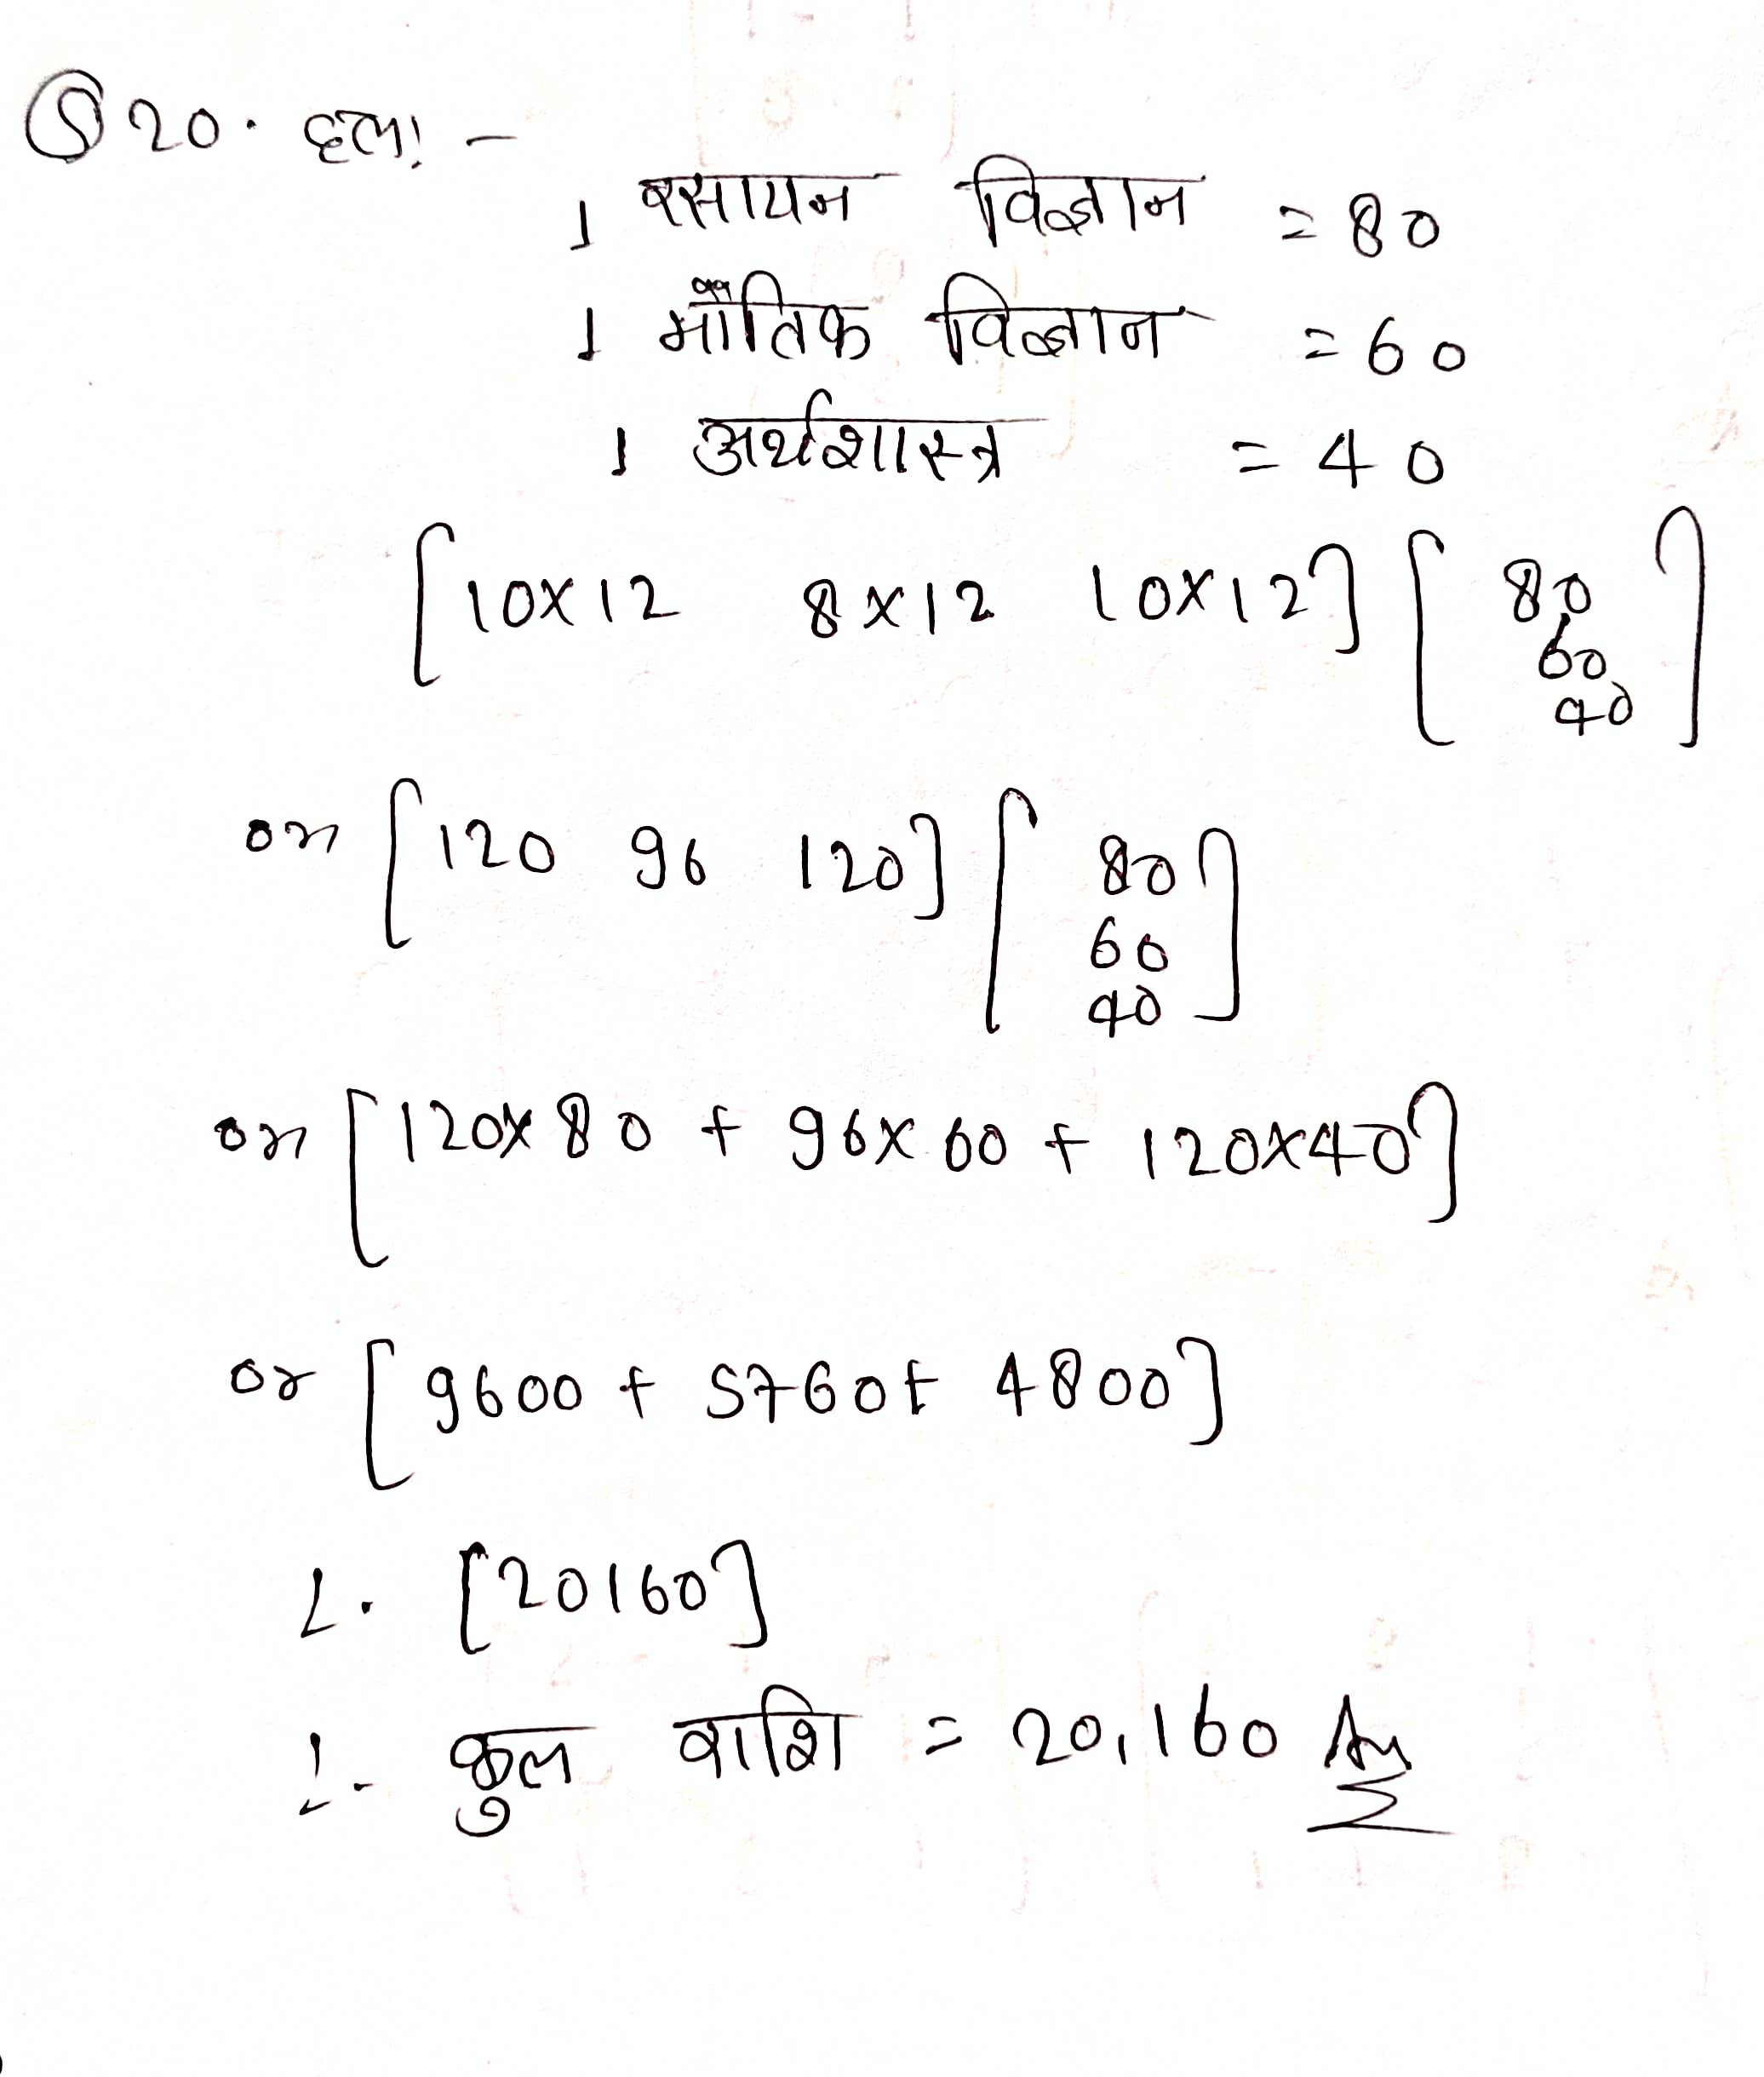 Q 20. हल! -
1 रसायन विज्ञान = 80
1 भौतिक विज्ञान = 60
1 अर्थशास्त्र = 40
[10×12 8×12 10×12] [80
60
40]
or [120 96 120] [80
60
40]
or [120×80 + 96×60 + 120×40]
or [9600 + 5760+ 4800]
∴ [20160]
∴ कुल राशि = 20,160 Ans